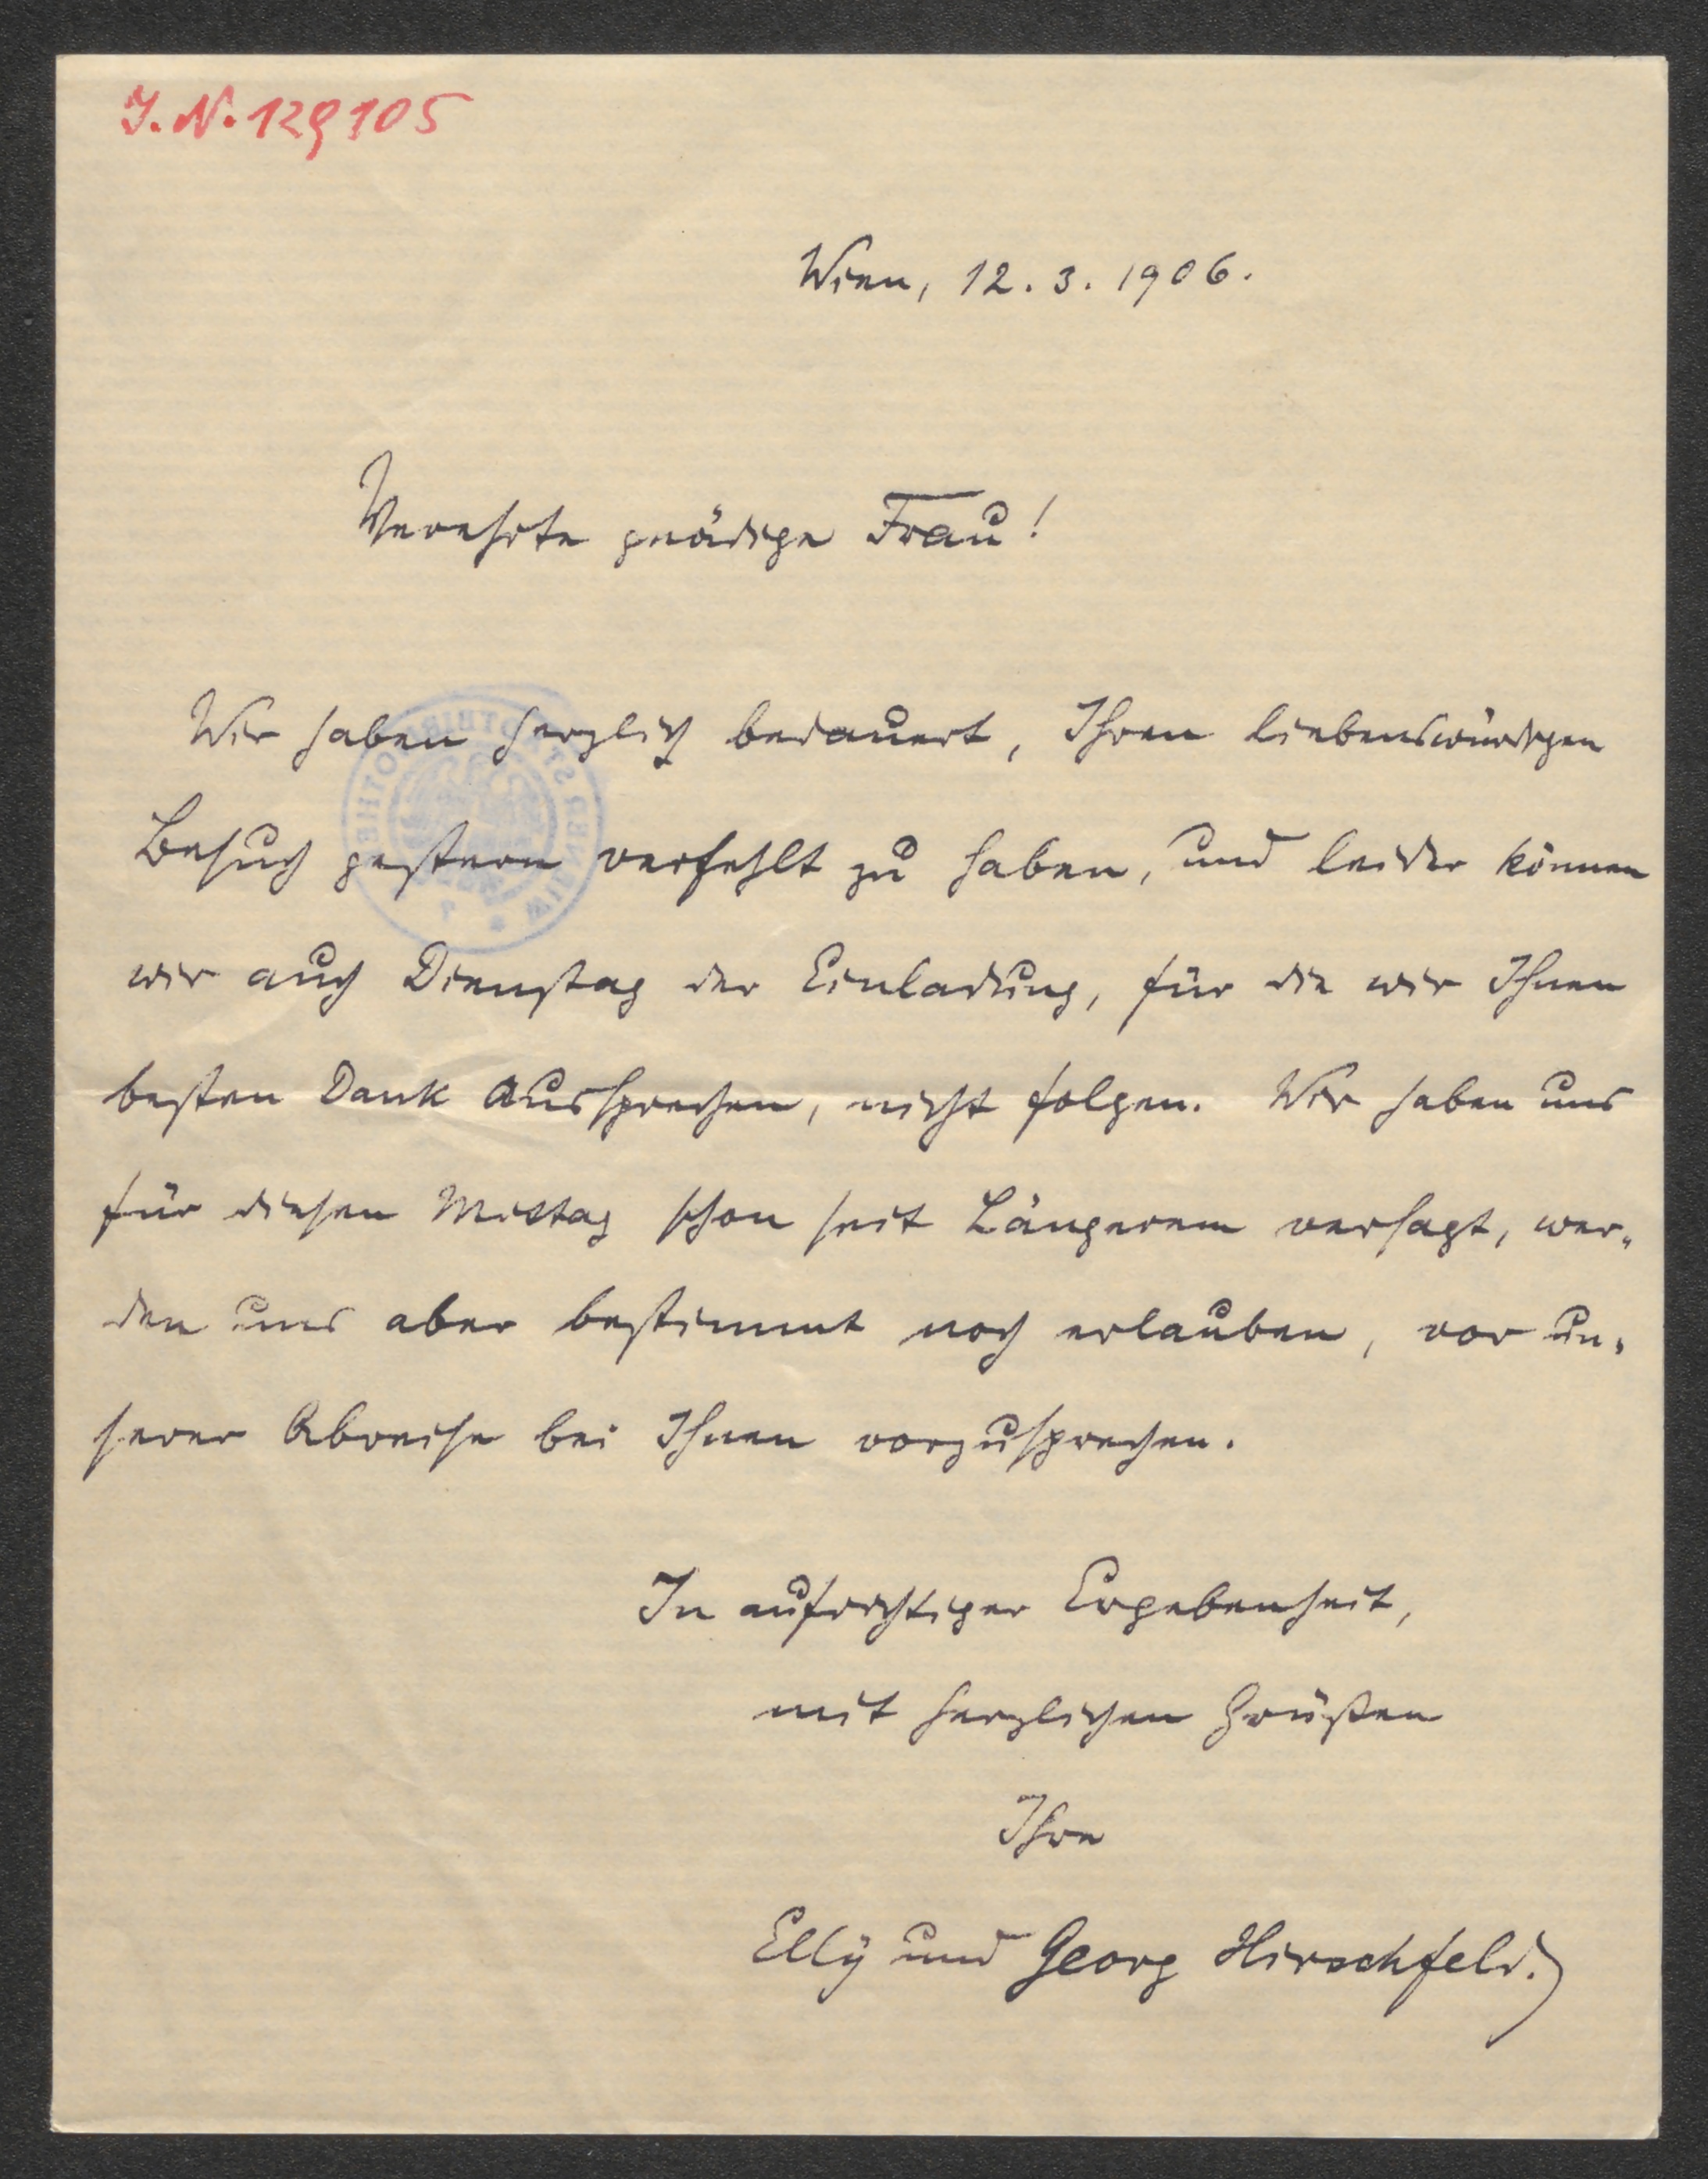 J. N. 129105
Wien, 12. 3. 1906.
Verehrte gnädige Frau!
Wir haben herzlich bedauert, Ihren liebenswürdigen
Besuch gestern verfehlt zu haben, und leider können
wir auch Dienstag der Einladung, für die wir Ihnen
besten Dank aussprechen, nicht folgen. Wir haben uns
für diesen Mittag schon seit Längerem versagt, wer-
den uns aber bestimmt noch erlauben, vor un-
serer Abreise bei Ihnen vorzusprechen.
In aufrichtiger Ergebenheit,
mit herzlichen Grüßen
Ihre
Elly und Georg Hirschfeld.